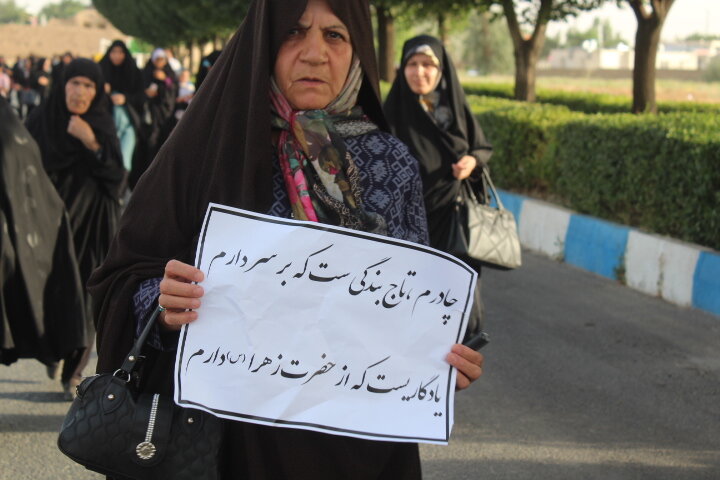 چادرم ،تاج بندگی ست که بر سر دارم
یادگاریست که از حضرت زهرا (س) دارم